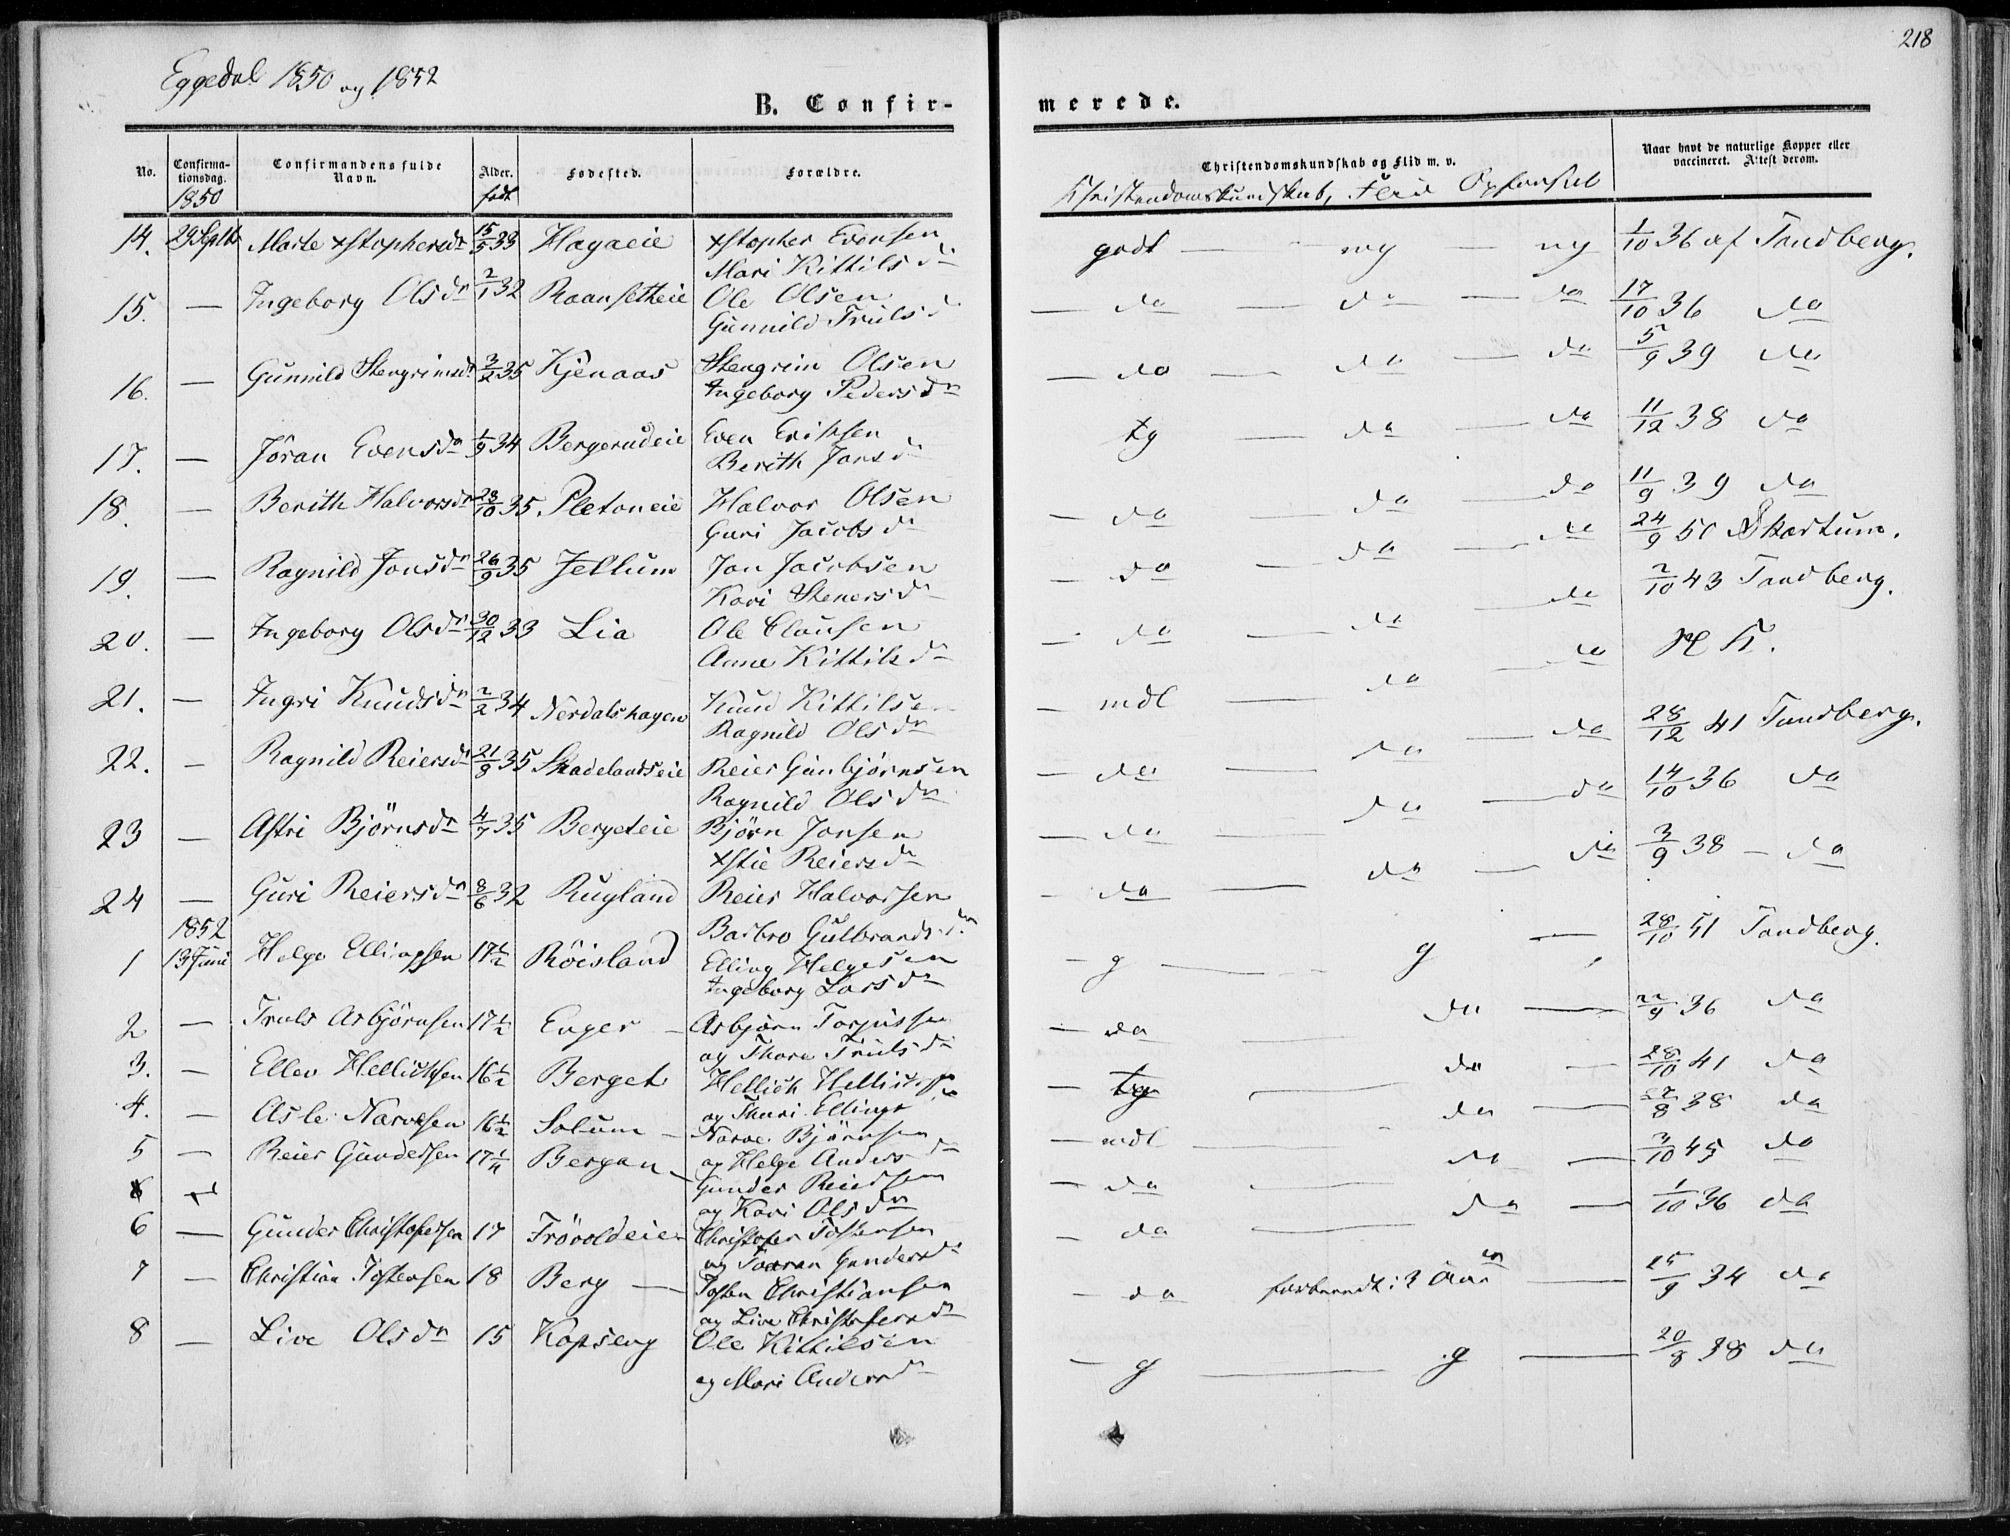 218
Eggedal 1850 og 1852
B. Confirmerede.
No. Confirmationsdag. Confirmandens fulde Navn. Alder. Fødested. Forældre. Christendomskundskab og Flid m. v. Naar havt de naturlige Kopper eller vaccineret. Attest derom.
1850 født Christendomskundskab, Flid Opførsel
14. 29 Septb Marte Xstophersdr 15/5 33 Hagaeie Xstopher Evensen godt — mg — mg 1/10 36 af Tandberg.
Mari Kittilsdr
15. — Ingeborg Olsdr 2/1 32 Raansetheie Ole Olsen — do — do — do 17/10 36 do
Gunnild Trulsd
16. — Gunnild Stengrimsdr 3/2 35 Kjenaas Stengrim Olsen — do — do — do 5/9 39 do
Ingeborg Pedersdr
17. — Jöran Evensdr 1/9 34 Bergerudeie Even Eriksen tg — do — do 11/12 38 do
Berith Jonsdr
18. — Berith Halvorsdr 23/10 35 Pletoneie Halvor Olsen — do — do — do 11/9 39 do
Guri Jacobsdr
19. — Ragnild Jonsdr 26/9 35 Jellum Jon Jacobsen — do — do — do 24/9 50 Skartum.
Kari Stenersdr
20. — Ingeborg Olsdr 30/12 33 Lia Ole Clausen — do — do — do 2/10 43 Tandberg.
Anne Kittilsdr
21. — Ingri Knudsdr 2/2 34 Nerdalshagen Knud Kittilsen — mdl — do — do N K.
Ragnild Olsdr
22. — Ragnild Reiersdr 21/8 35 Skadelandseie Reier Gunbjørnsen — do — do — do 28/12 41 Tandberg.
Ragnild Olsdr
23 — Astri Bjørnsdr 4/7 35 Bergeteie Bjørn Jonsen — do — do — do 14/10 36 do
Xstie Reiersdr
24 — Guri Reiersdr 8/6 32 Rugland Reier Halvorsen — do — do — do 3/9 38 — do
Barbro Gulbrandsdr
1852
1 13 Juni Helge Ellingsen 17½ Röisland Elling Helgesen — g — g — 28/10 41 Tandberg.
Ingeborg Larsdr
2 — Truls Asbjörnsen 17½ Enger — Asbjørn Torjussen — do — do — 22/9 36 do
og Thore Trulsdr
3. — Ellev Hellichsen 16½ Berget Hellich — tg — do — 28/10 41 do
og Thuri Ellings
4. — Asle Narvesen 16½ Solum — Narve Björnsen — mdl — do — 27/8 38 do
og Helge Andersdr
5 — Reier Gundersen 17¼ Bergan — Gunder — do — do — 3/10 45 do
og Kari Olsdr
6 — Gunder Christofersen 17 Frövoldeie — Christofer Tostensen — do — do — 1/10 36 do
og Joran Gundersdr
7 — Christian Tostensen 18 Berg — Tosten Christiansen — do 15/9 34 do
og Live Christofersdr
8 — Live Olsdr 15 Kopseng Ole Kittilsen — g — g — 20/8 38 do
og Mari Andersdr